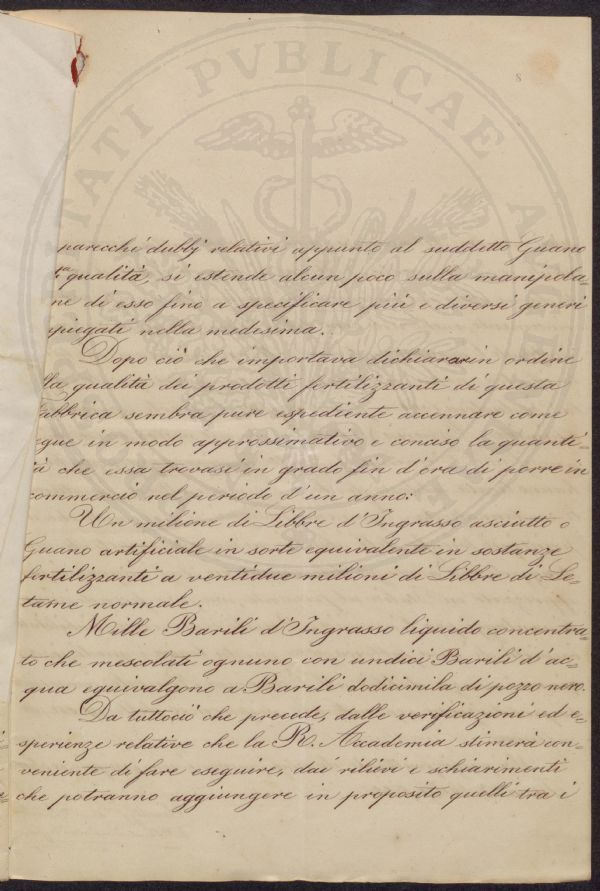 8
parecchi dubbj relativi appunto al suddetto Guano
1ª qualità, si estende alcun poco sulla manipola=
ne di esso fino a specificare più e diversi generi
piegati nella medesima.
Dopo ciò che importava dichiarare in ordine
lla qualità dei prodotti fertilizzanti di questa
abbrica sembra pure espediente accennare come
egue in modo approssimativo e conciso la quanti=
tà che essa trovasi in grado fin d'ora di porre in
commercio nel periodo d'un anno:
Un milione di Libbre d'Ingrasso asciutto o
Guano artificiale in sorte equivalente in sostanze
fertilizzanti a ventidue milioni di Libbre di Le=
tame normale.
Mille Barili d'Ingrasso liquido concentra=
to che mescolati ognuno con undici Barili d'ac=
qua equivalgono a Barili dodicimila di pozzo nero.
Da tuttociò che precede, dalle verificazioni ed e=
sperienze relative che la R. Accademia stimerà con=
veniente di fare eseguire, dai rilievi e schiarimenti
che potranno aggiungere in proposito quelli tra i